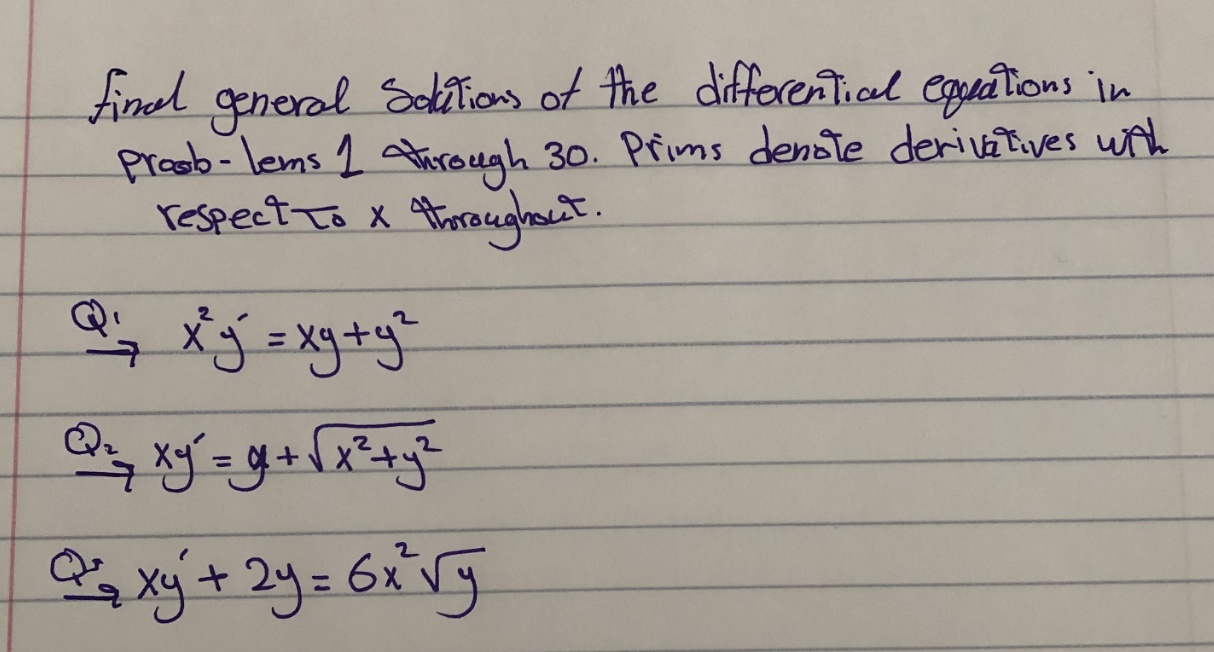 final general Solutions of the differential equations in
proob-lems 1 through 30. Prims denote derivatives with
respect to x throughout.
Q1 x²y′ = xy + y²
Q2 xy′ = y + √(x² + y²)
Q3 xy′ + 2y = 6x²√y